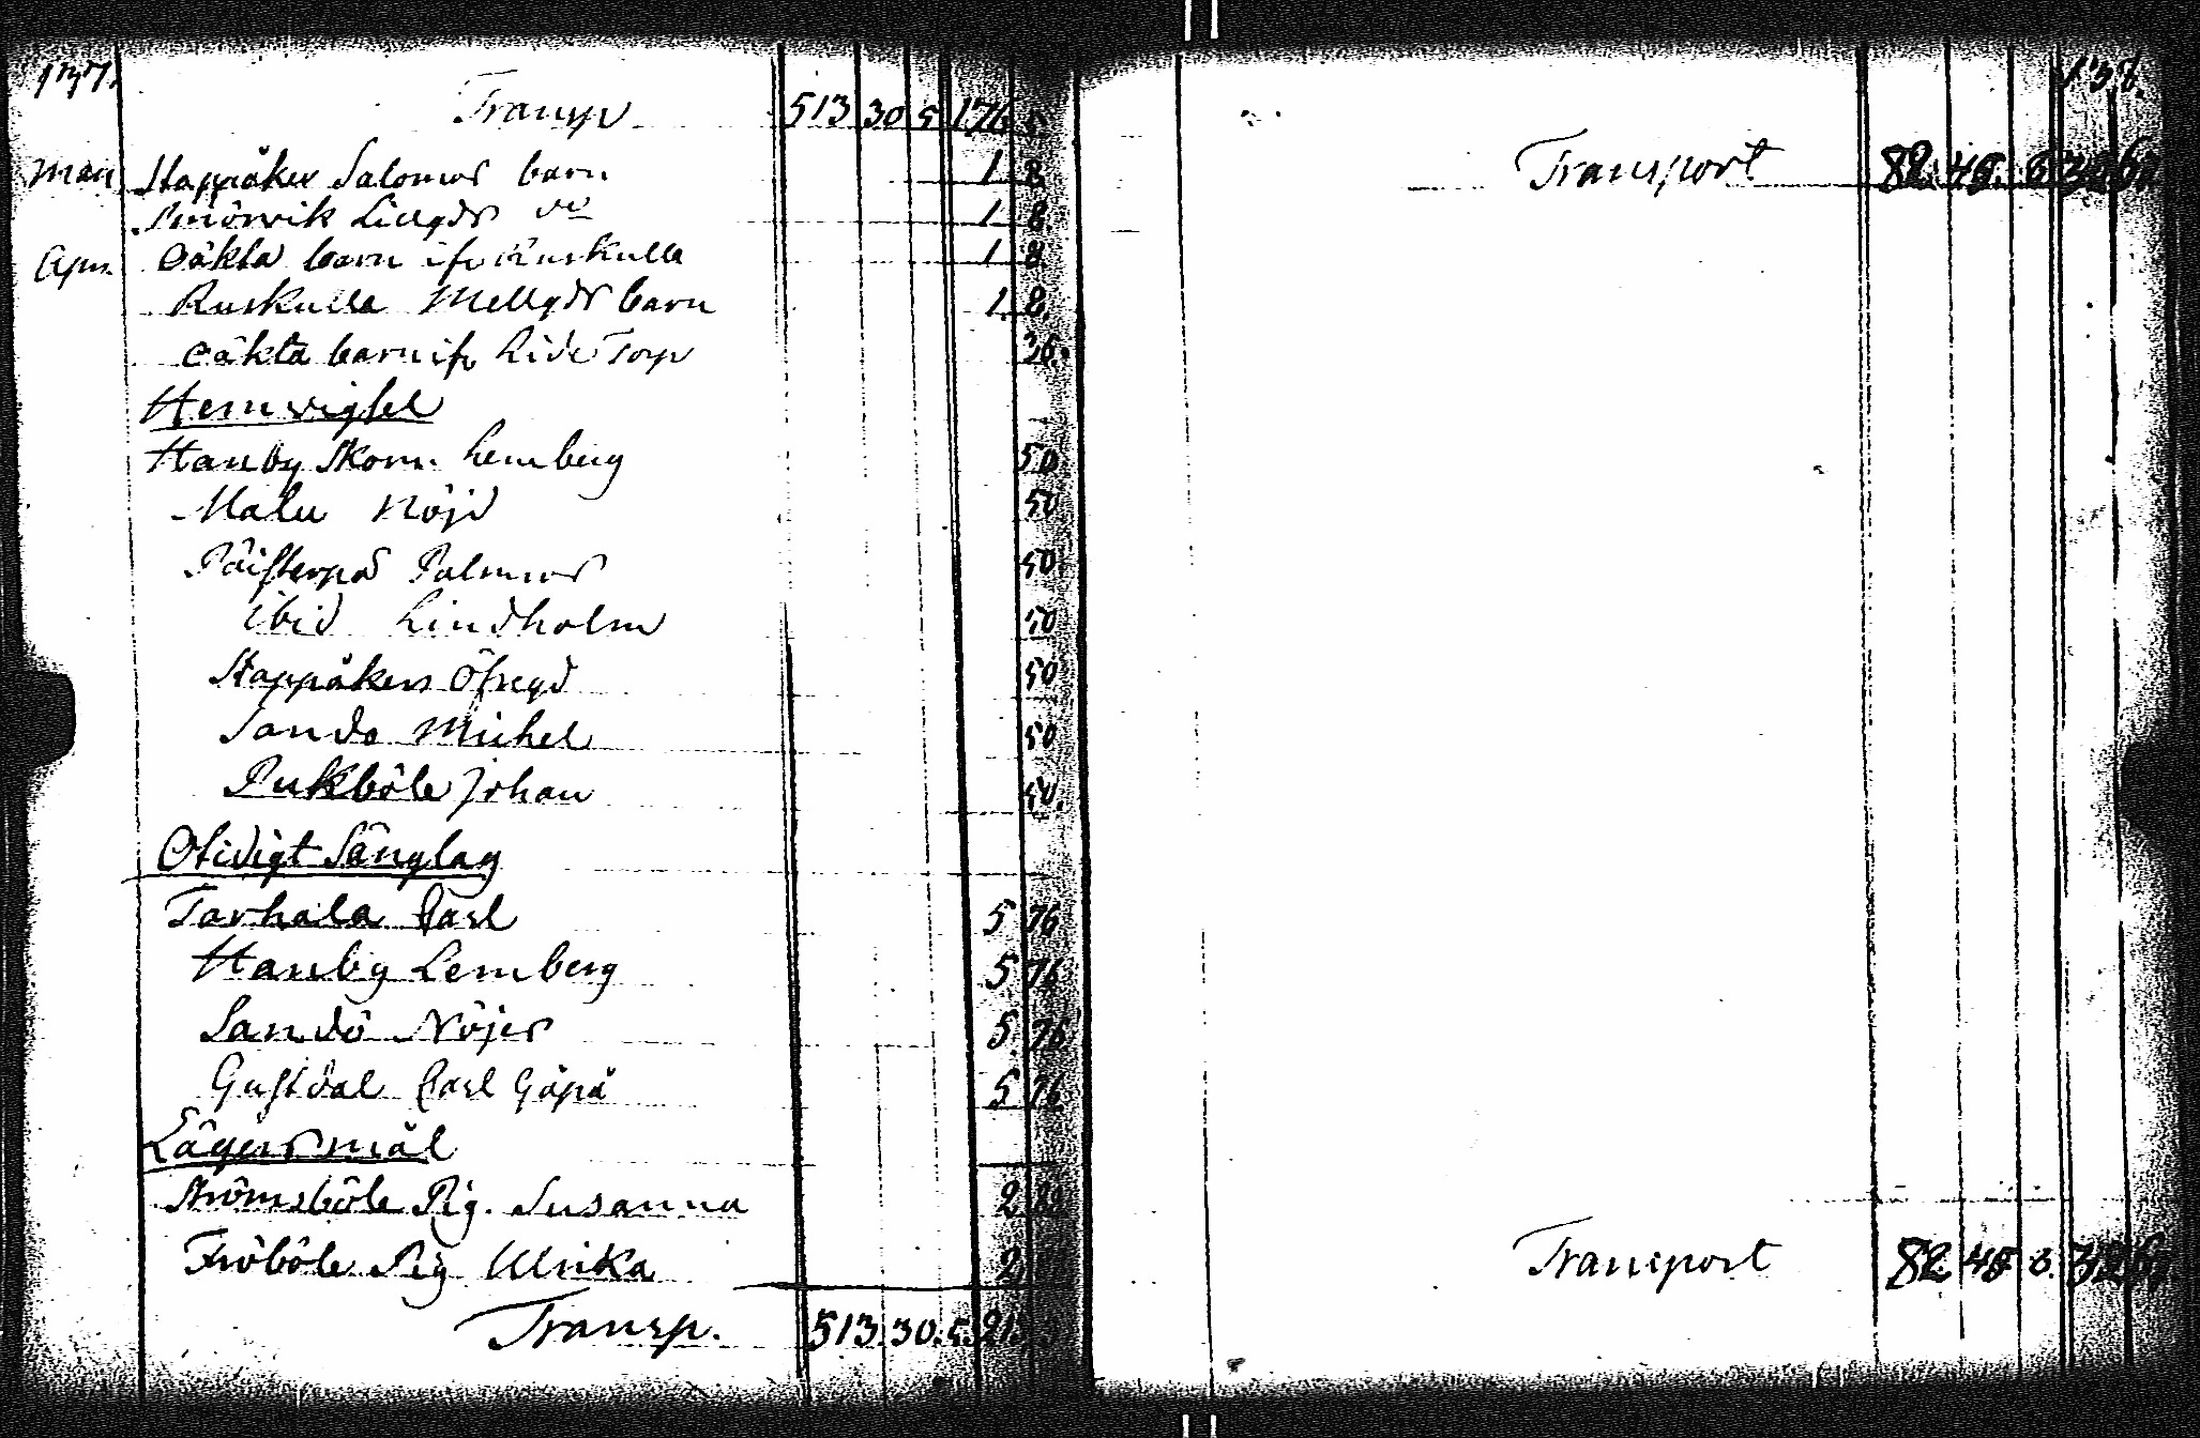 137.
Transp 513 30 5 176
Mars Stappåker Salomos barn 1 8
Smörvik Lillgds do 1 8
Apr. Oäkta barn ifr Ruskulla 1 8
Ruskulla Mellgds barn 1. 8.
Oäkta barn ifr Lide Torp 36.
Hemvigsel
Hanby Skom. Lemberg 50
Malu Nöjd 50
Påisterpå Palmros 50.
ibid Lindholm 50
Stappåkers Öfregd 50
Sando Michel 50
Pukböle Johan 50.
Otidigt Sänglag
Tarhala Carl 5 76
Hanby Lemberg 5 76
Sandö Nöjer 5 76
Gustdal Carl Gåpå 5 76
Lägersmål
Strömsböle Pig. Susanna 2
Fröböle Pig Ulrika 2
Transp. 513. 30. 5.
138.
Transport 82. 45.
Transport 82. 45